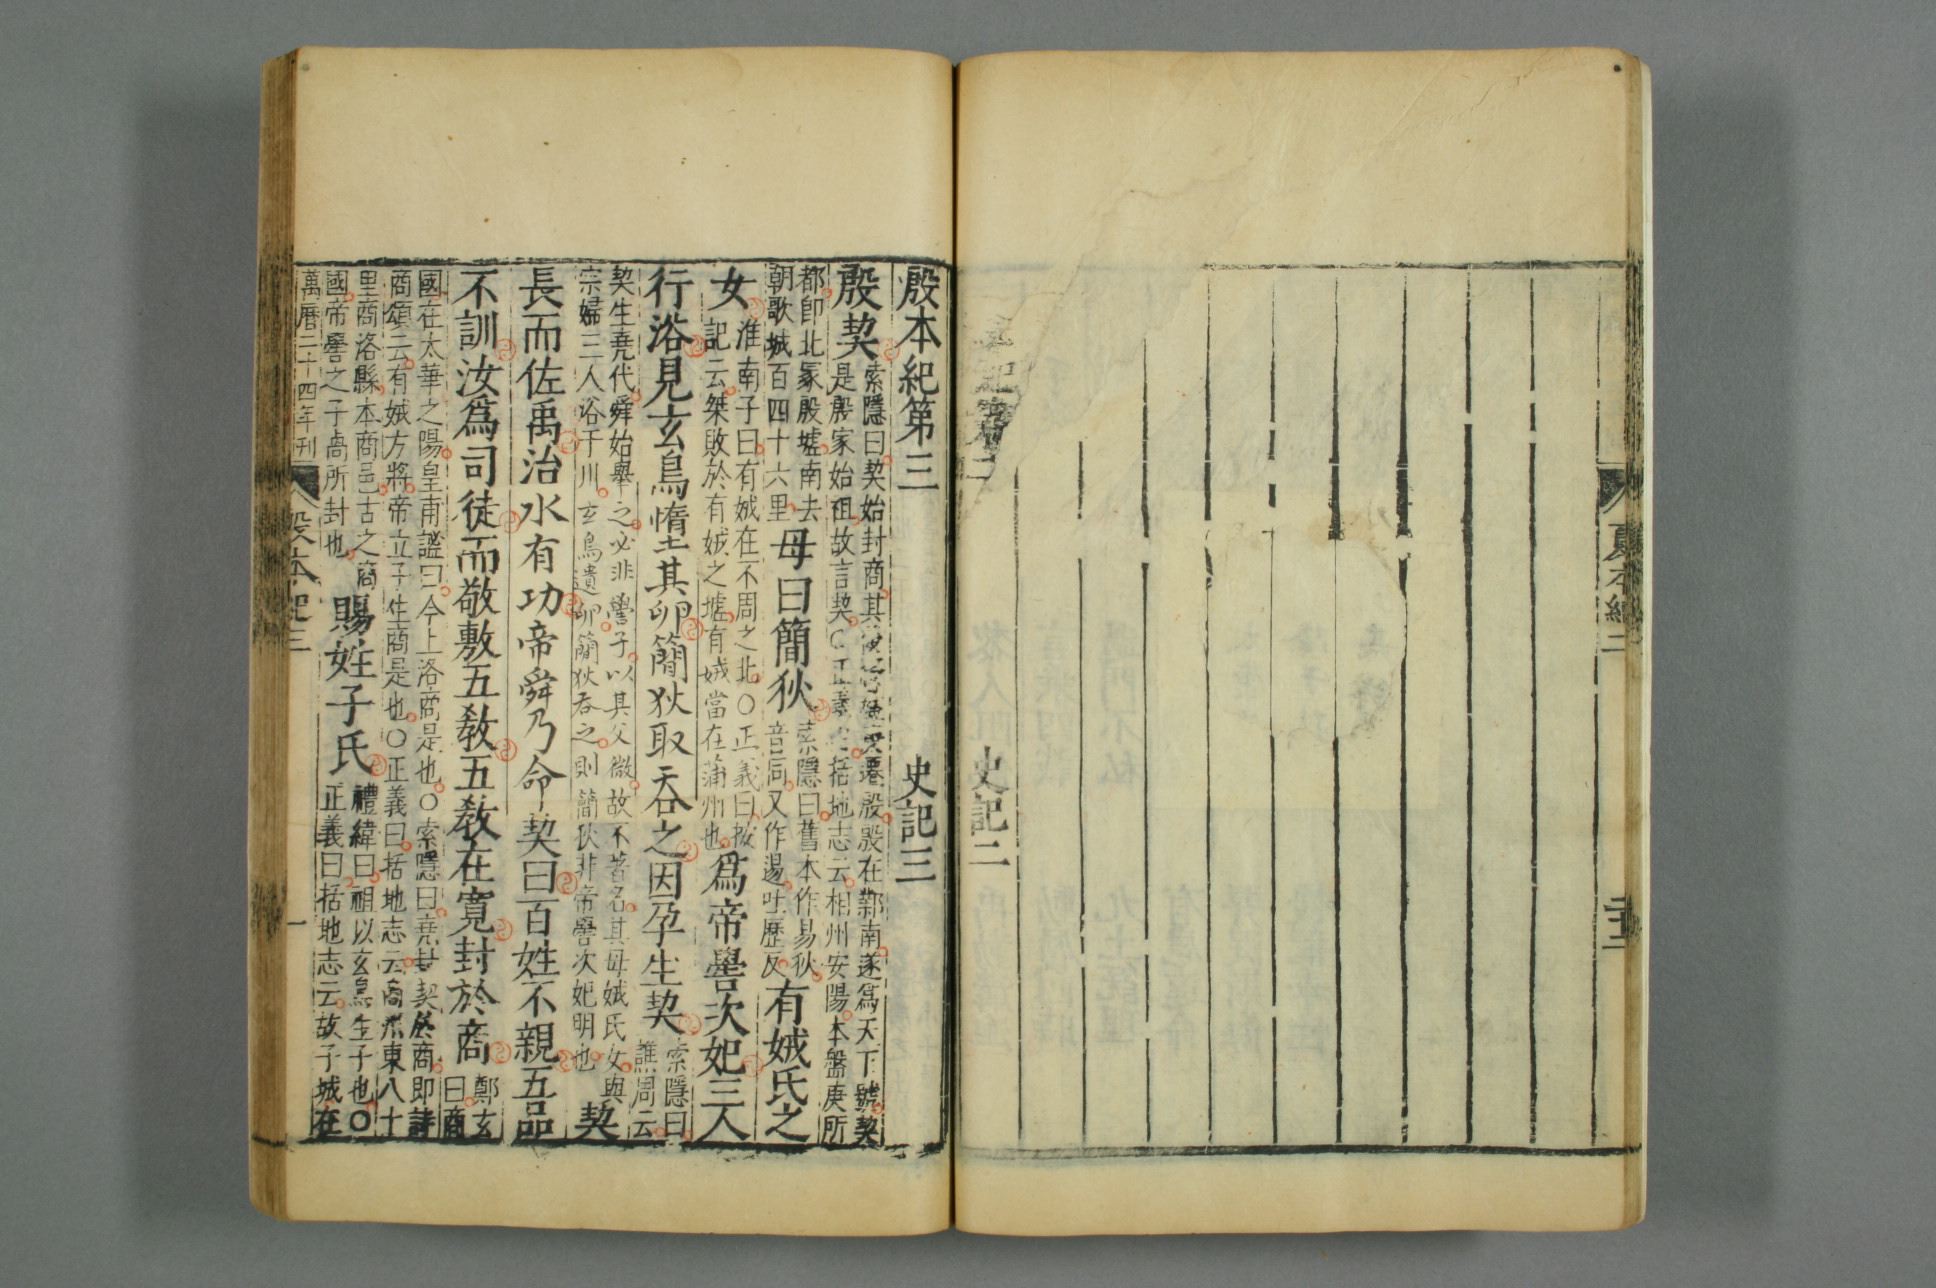 夏本紀二
本紀第二 史記二
殷本紀第三 史記三
殷契索隱曰契始封商其後盤庚遷殷殷在鄴南遂爲天下號契
是殷家始祖故言契○正義曰括地志云相州安陽本盤庚所
都即北冢殷墟南去
朝歌城百四十六里母曰簡狄索隱曰舊本作易狄
音同又作逷吐歷反有娀氏之
女淮南子曰有娀在不周之北○正義曰按
記云桀敗於有娀之墟有娀當在蒲州也爲帝嚳次妃三人
行浴見玄鳥墮其卵簡狄取吞之因孕生契索隱曰
譙周云
契生堯代舜始舉之必非嚳子以其父微故不著名其母娀氏女與
宗婦三人浴于川玄鳥遺卵簡狄吞之則簡狄非帝嚳次妃明也契
長而佐禹治水有功帝舜乃命契曰百姓不親五品
不訓汝爲司徒而敬敷五敎五敎在寛封於商鄭玄
曰商
國在太華之陽皇甫謐曰今上洛商是也○索隱曰堯封契於商即詩
商頌云有娀方將帝立子生商是也○正義曰括地志云商州東八十
里商洛縣本商邑古之商
國帝嚳之子卨所封也賜姓子氏禮緯曰祖以玄鳥生子也○
正義曰括地志云故子城在
萬曆二十四年刊 殷本紀三 一